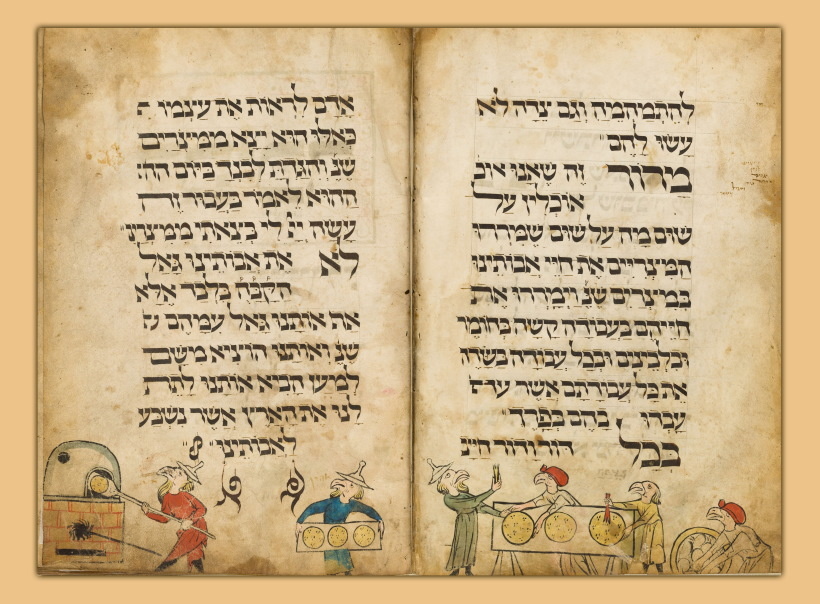 להתמהמה וגם צדה לא
עשו להם
מרור זה שאנו אוכ
אוכלין על
שום מה על שום שמררו
המצריים את חיי אבותינו
במצרים שנ וימררו את
חייהם בעבודה קשה בחומר
ובלבנים ובכל עבודה בשדה
את כל עבודתם אשר
עבדו בהם בפרך
בכל דור ודור חייב
אדם לראות את עצמו
כאלו הוא יצא ממצרים
שנ והגדת לבנך ביום ההו
ההוא לאמר בעבור זה
עשה לי בצאתי ממצרים
לא את אבותינו גאל
הקבה בלבד אלא
את אותנו גאל עמהם
שנ ואותנו הוציא משם
למען הביא אותנו לתת
לנו את הארץ אשר נשבע
לאבותינו